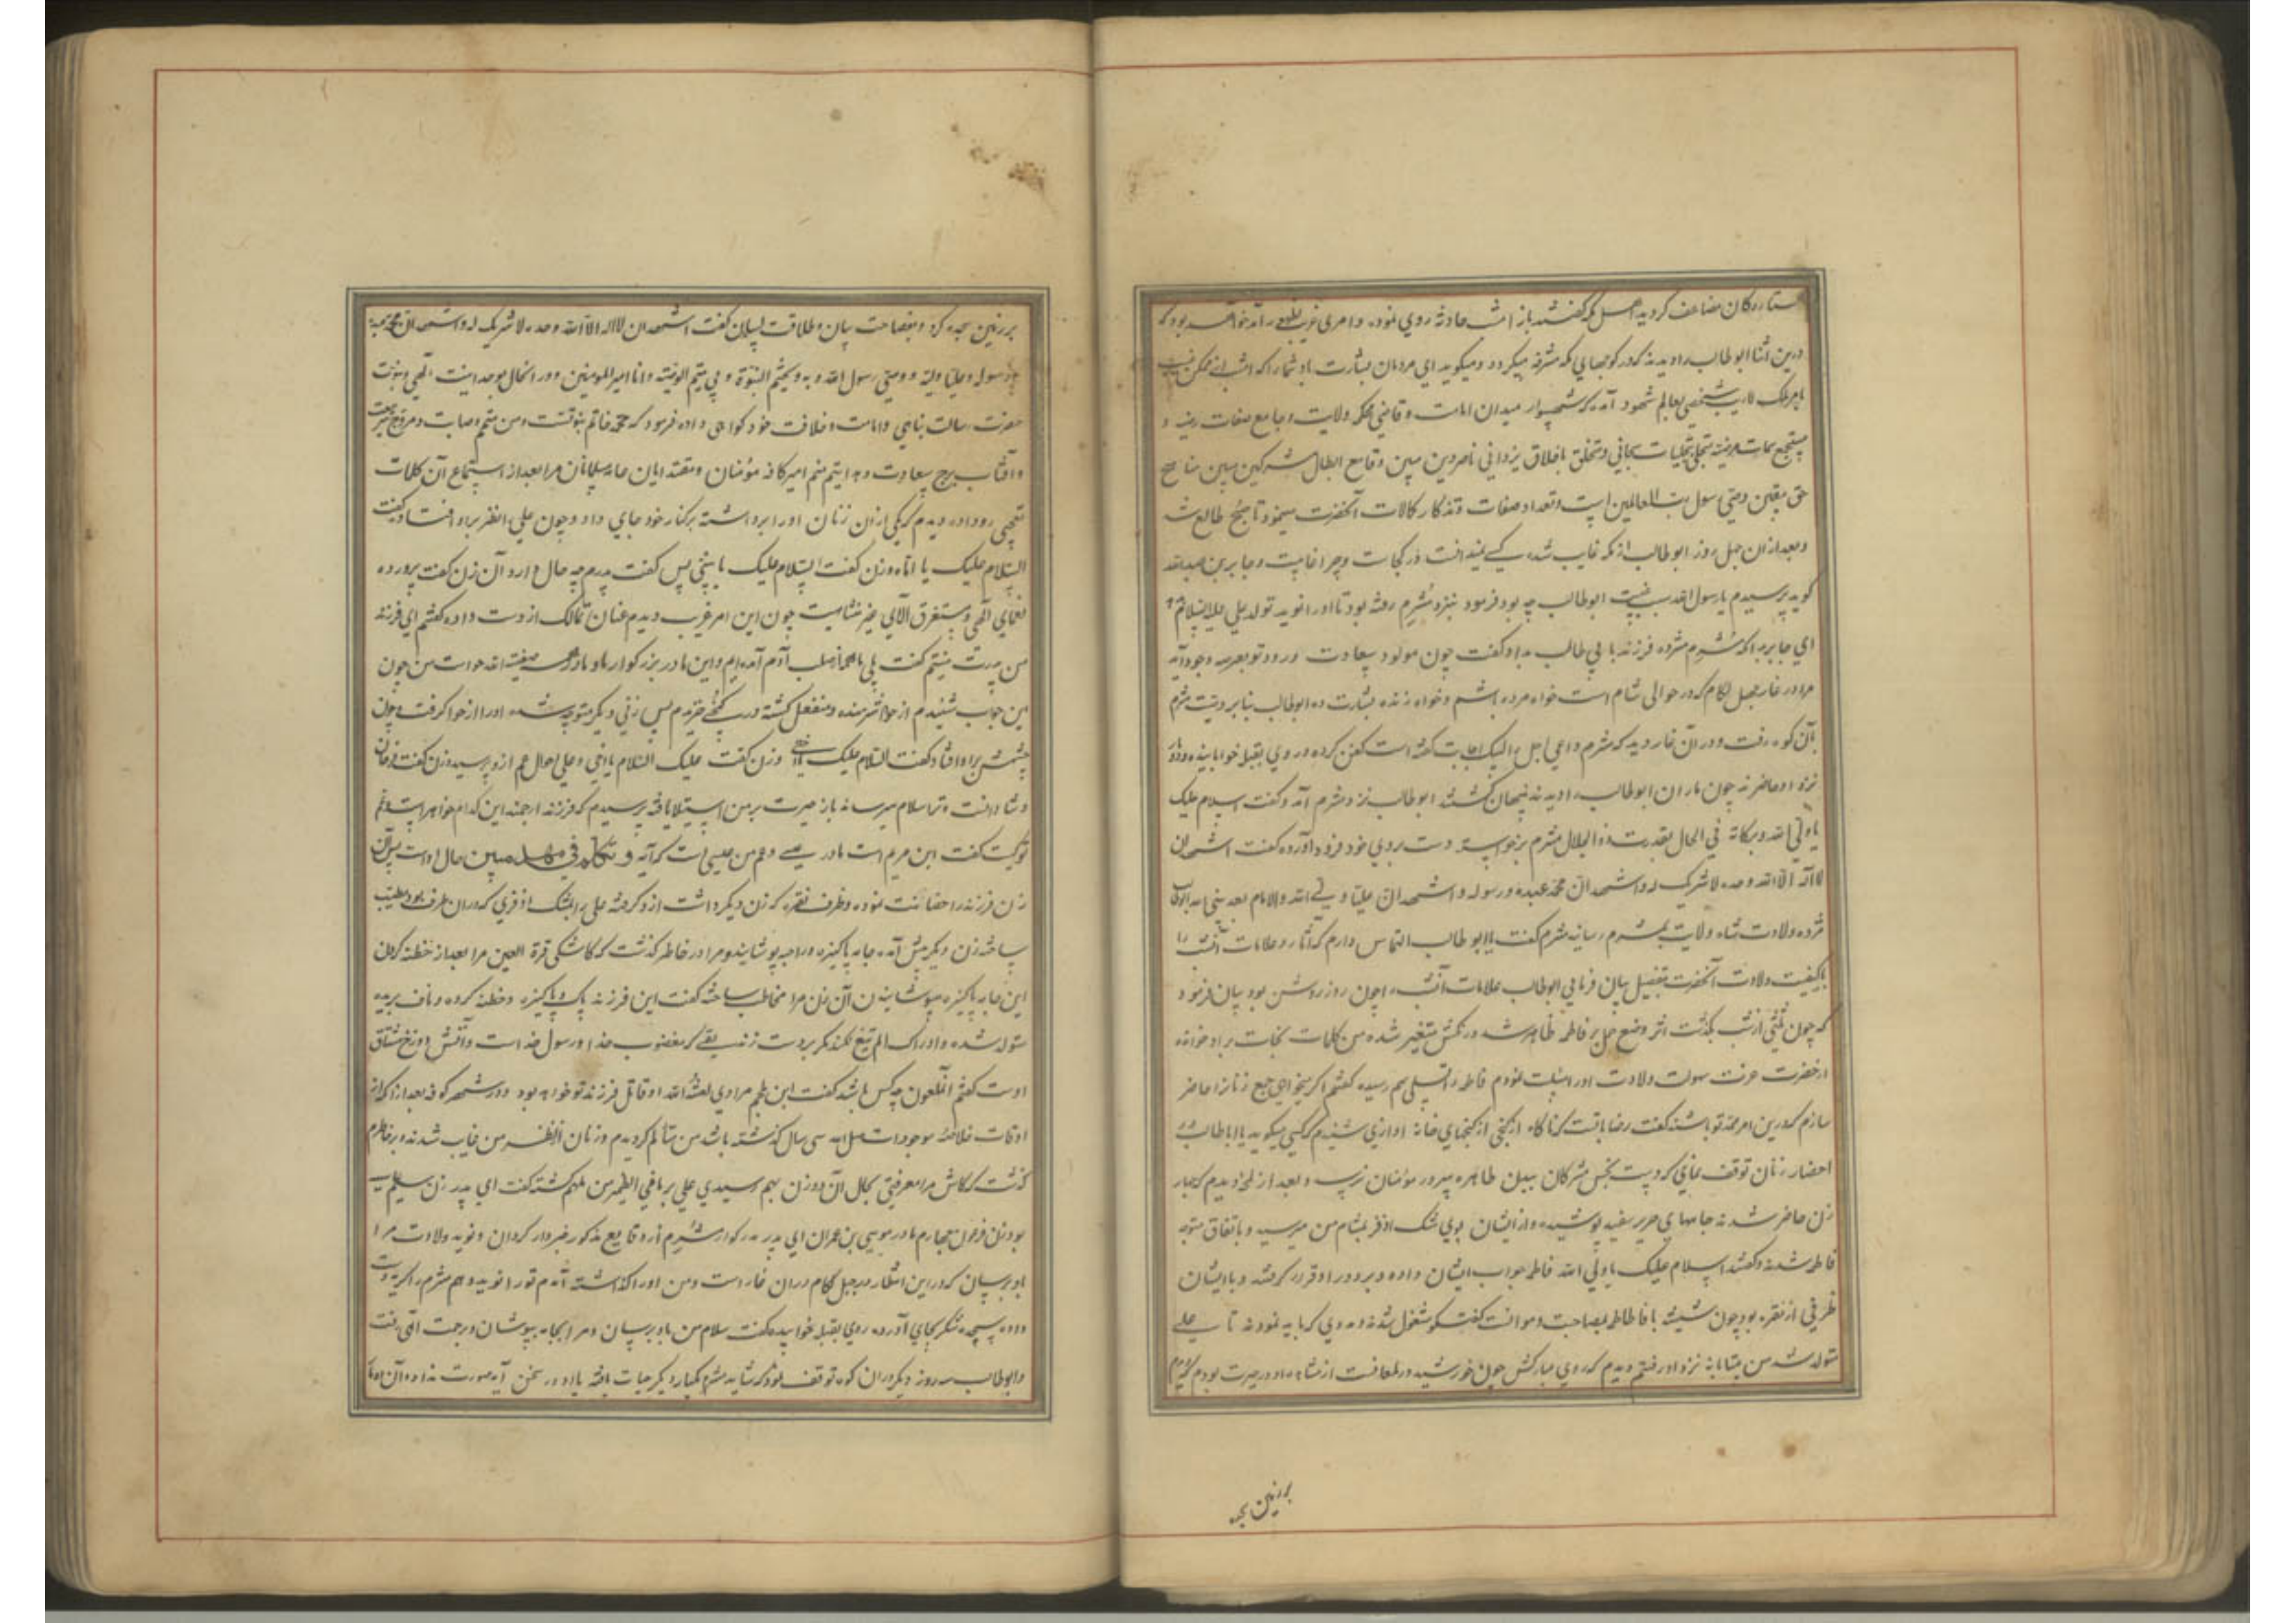 ستارگان مضاعف کردید اهل مکه گفتند باز امشب حادثه روی نموده و امری غریب بظهور آمد خواهد بود که
درین اثنا ابوطالب را دیدند که در کوچهای مکه مشرفه میکردد و میکوید ای مردمان بشارت باد شما را که امشب
شخصی بعالم شهود آمد که شهسوار میدان امامت و قاضی محکمه ولایت و جامع صفات رضیه و
مستجمع سمات مرضیه متجلی بتجلیات سبحانی و متخلق باخلاق یزدانی ناصر دین مبین و قامع ابطال مشرکین
حق یقین وصی رسول رب العالمین است و تعداد صفات و تذکار کالات آنحضرت مینمود تا صبح طالع شد
و بعد از ان چهل روز ابوطالب از مکه غایب شد کسی نمیدانست در کجاست و چرا غایبست و جابر بن عبدالله
کوید پرسیدم یا رسول الله سبب غیبت ابوطالب چه بود فرمود بنزد مثرم رفته بود تا او را نوید تولد علی علیه السلام
ای جابر بدانکه مثرم مژده فرزند بابی طالب داد و گفت چون مولود سعادت ورود تو بعرصه وجود آید
مرا در غار جبل لکام که در حوالی شام است خواه مرده باشم و خواه زنده بشارت ده ابوطالب بنا بر وصیت مثرم
بآن کوه رفت و در آن غار دید که مثرم داعی اجل را لبیک اجابت گفته است کفن کرده و روی بقبله خوابانیده و دو مار
نزد او حاضرند چون ماران ابوطالب را دیدند پنهان کشتند ابوطالب نزد مثرم آمد و گفت السلام علیک
یا ولی الله و برکاته فی الحال بقدرت ذوالجلال مثرم برخواسته دست بروی خود فرود آورده گفت اشهد ان
لا اله الا الله وحده لا شریک له و اشهد ان محمدا عبده و رسوله و اشهد ان علیا ولی الله و الامام بعد نبی الله ابوطالب
مژده ولادت شاه ولایت بمثرم رسانید مثرم گفت یا ابوطالب التماس دارم که آثار و علامات آنشب را
با کیفیت ولادت آنحضرت بتفصیل بیان فرمایی ابوطالب علامات آنشب را چون روز روشن بود بیان فرمود
که چون ثلثی از شب بگذشت اثر وضع حمل بر فاطمه ظاهر شد و رنگش متغیر شده من کلمات نجات بر او خوانده
از حضرت عزت سهولت ولادت او را مسئلت نمودم فاطمه را تسلی بهم رسیده گفتم اگر میخواهی جمع زنانرا حاضر
سازم که درین امر ممد تو باشند گفت رضا باتست که ناگاه از کنجی از کنجهای خانه آوازی شنیدم که کسی میکوید یا اباطالب از
احضار زنان توقف نمای که دست نجس مشرکان ببدن طاهره سرور مؤمنان نرسد و بعد از لمحه دیدم که چهار
زن حاضر شدند جامهای حریر سفید پوشیده و از ایشان بوی مشک اذفر بمشام من میرسید و باتفاق متوجه
فاطمه شدند و گفتند السلام علیک یا ولی الله فاطمه جواب ایشان داده و بر دور او قرار گرفتند و با ایشان
ظرفی از نقره بود چون نشستند با فاطمه بمصاحبت و موانست گفتگو مشغول شدند و مددی که باید نمودند تا علی
متولد شد من شتابانه نزد او رفتم دیدم که روی مبارکش چون خورشید در لمعانست از مشاهده او در حیرت بودم که
بر زمین سجده
بر زمین سجده کرد و بفصاحت بیان و طلاقت لسان گفت اشهد ان لا اله الا الله وحده لا شریک له و اشهد ان محمدا عبده
و رسوله و علیا ولیه و وصی رسول الله و به و یختم النبوة و بی یتم الوصیة و انا امیر المومنین و در آنحال بوحدانیت الهی و نبوت
حضرت رسالت پناهی و امامت و خلافت خود گواهی داده فرمود که محمد خاتم نبوتست و من متمم وصایت و مروج
و آفتاب برج سعادت و هدایتم منم امیر کافه مؤمنان و مقتدایان عامه مسلمانان مرا بعد از استماع آن کلمات
تعجبی رو داده دیدم که یکی از ان زنان او را برداشته بر کنار خود جای داد و چون علی را نظر بر او افتاد گفت
السلام علیک یا اماه و زن گفت السلام علیک یا بنی پس گفت پدرم چه حال دارد آن زن گفت پرورده
نعمای الهی و مستغرق آلای غیر متناهیست چون این امر غریب دیدم عنان تمالک از دست داده گفتم ای فرزند
من پدرت نیستم گفت بلی ما هما از صلب آدم آمده‌ایم و این مادر بزرگوار ما و مادر همه صفیة الله حواست من چون
این جواب شنیدم از حوا شرمنده و منفعل گشته در کنجی خزیدم پس زنی دیگر متوجه شده او را از حوا گرفت و چون
چشمش بر او افتاد گفت السلام علیک یا اختی و زن گفت علیک السلام یا اخی و علی احوال عم از و پرسید و زن گفت فرحان
و شادانست و ترا سلام میرساند باز حیرت بر من استیلا یافته پرسیدم که فرزند ارجمند این کدام خواهر است و عم
تو کیست گفت این مریم است مادر عیسی و عم من عیسی است که آیه و تکلم فی مهد مبین حال اوست پس آن
زن فرزند را حضانت نموده و ظرف نقره که زن دیگر داشت از و گرفته علی را بمشک اذفری که در ان ظرف بود مطیب
ساخته زن دیگر پیش آمده جامه پاکیزه و را بپوشانید و مرا در خاطر گذشت که کاشکی قرة العین مرا بعد از ختنه کردن
این جامه پاکیزه میپوشانیدن آن زن مرا مخاطب ساخته گفت این فرزند پاک و پاکیزه و ختنه کرده و ناف بریده
متولد شده و ادراک الم تیغ نکند مگر بر دست زندیقی که مغضوب خدا و رسول خدا است و آتش دوزخ مشتاق
اوست گفتم آنملعون چه کس باشد گفت ابن ملجم مرادی لعنه الله او قاتل فرزند تو خواهد بود و در شهر کوفه بعد از آنکه از
اوقات خلاصه موجودات صلی الله سی سال گذشته باشد من متالم گردیدم و زنان از نظر من غایب شدند و بر خاطرم
گذشت که کاش مرا معرفتی بحال آن دو زن بهم رسیدی علی بر ما فی الضمیر من ملهم گشته گفت ای پدر زن سیم آسیه
بود زن فرعون چهارم مادر موسی بن عمران ای پدر بزرگوار مثرم را از وقایع مذکور خبردار گردان و نوید ولادت مرا
باو برسان که در این انتظار در جبل لکام در ان غار است و من او را گذاشته آمدم تو را نوید دهم مثرم را گریه دست
داده سجده شکر بجای آورده روی بقبله خوابیده گفت سلام من باو برسان و مرا بجامه بپوشان و رحمت الهی رفت
و ابوطالب سه روز دیگر در ان کوه توقف نمود که شاید مثرم یکبار دیگر حیات یافته با او در سخن آید صورت نداد و آن